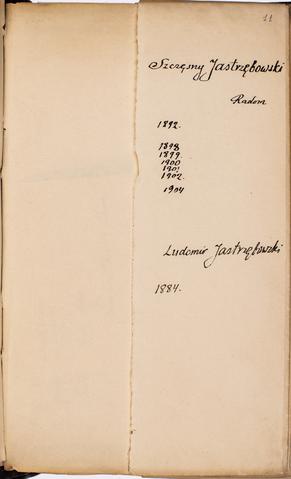 11
Szczęsny Jastrzębowski
Radom
1892.
1898
1899
1900
1901
1902.
1904
Ludomir Jastrzębowski
1884.